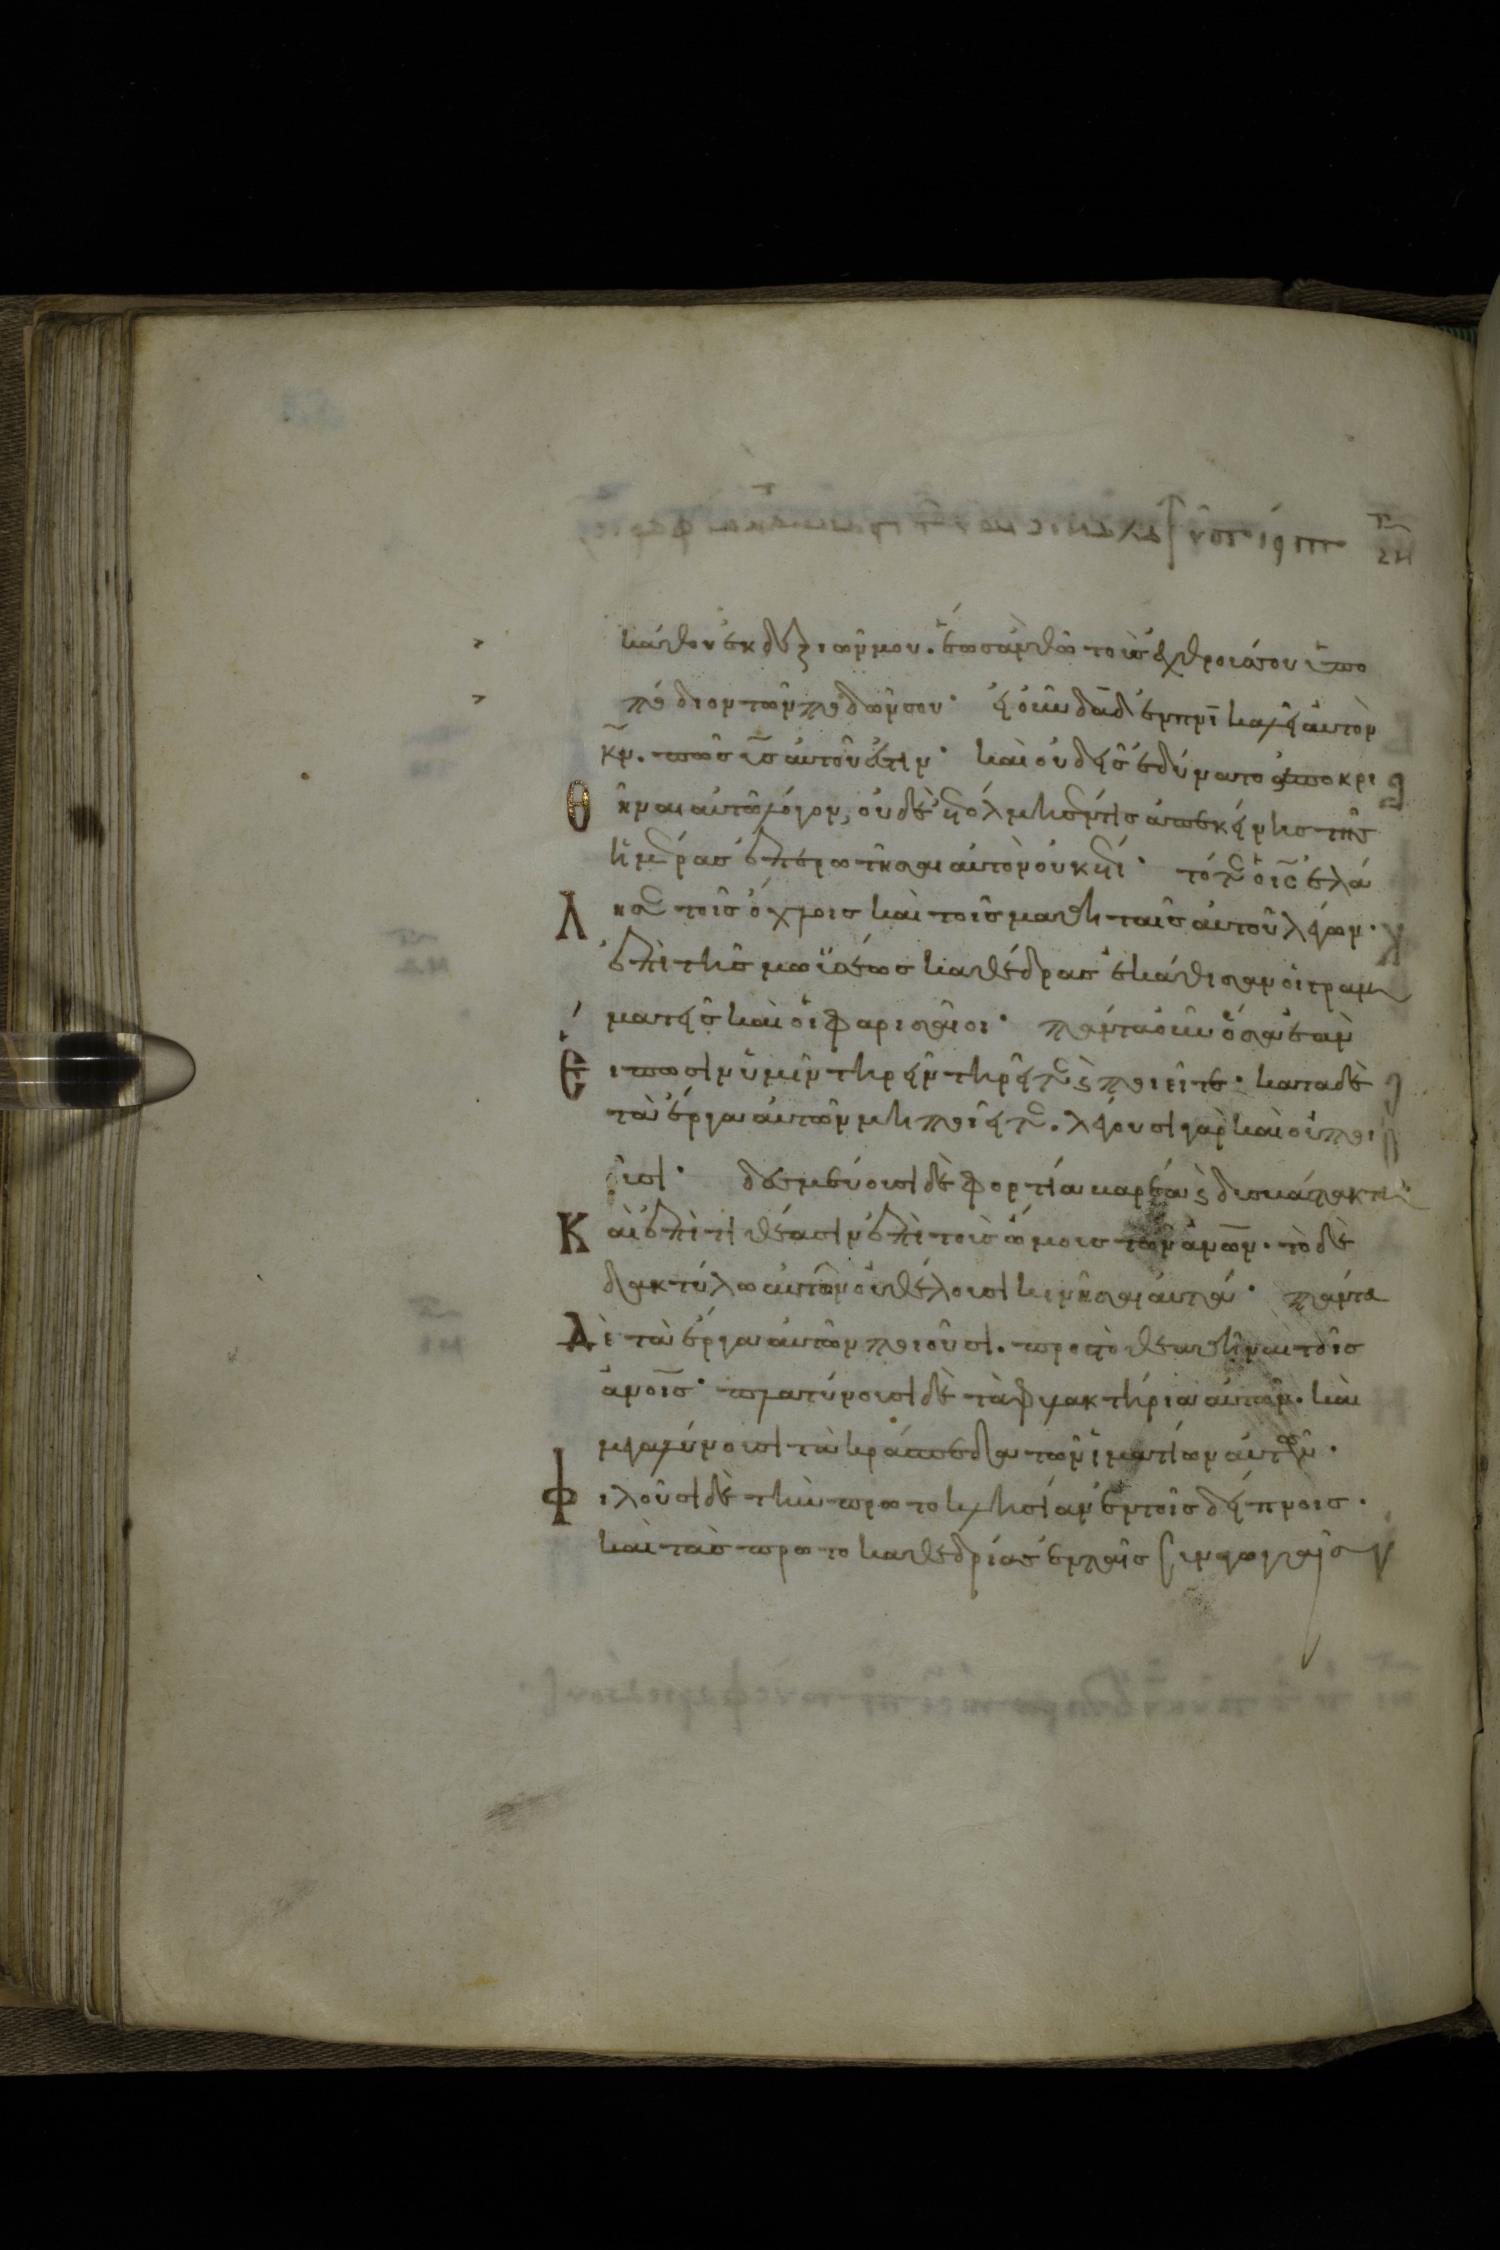 κάθου ἐκ δεξιῶν μου. ἕως ἂν θῶ τοὺς ἐχθρούς σου ὑπο
πόδιον τῶν ποδῶν σου· εἰ οὖν δᾱδ ἐν πνῑ καλεῖ αὐτὸν
κ̄ν. πῶς ῡς αὐτοῦ ἐστιν· καὶ οὐδεὶς ἐδύνατο ἀποκρι
θῆναι αὐτῶ λόγον, οὐδὲ ἐτόλμησέν τις ἀπ' ἐκείνης τῆς
ἡμέρας ἐπερωτῆσαι αὐτὸν οὐκέτι· τότε ὁ ῑς ἐλά
λησε τοῖς ὄχλοις καὶ τοῖς μαθηταῖς αὐτοῦ λέγων·
ἐπὶ τῆς μωϋσέως καθέδρας ἐκάθισαν οἱ γραμ
ματεῖς καὶ οἱ φαρισαῖοι· πάντα οὖν ὅσα ἐὰν
εἴπωσιν ὑμῖν τηρεῖν τηρεῖτε ϛ ποιεῖτε· κατὰ δὲ
τὰ ἔργα αὐτῶν μὴ ποιεῖτε. λέγουσι γὰρ καὶ οὐ ποι
οῦσι· δεσμεύουσι δὲ φορτία βαρέα ϛ δυσβάστακτα
Καὶ ἐπιτιθέασιν ἐπὶ τοὺς ὤμους τῶν ἀν̄ων. τῶ δὲ
δακτύλω αὐτῶν οὐ θέλουσι κινῆσαι αὐτά· πάντα
Δὲ τὰ ἔργα αὐτῶν ποιοῦσι. πρὸς τὸ θεαθῆναι τοῖς
ἀν̄οις· πλατύνουσι δὲ τὰ φυλακτήρια αὐτῶν. καὶ
μεγαλύνουσι τὰ κράσπεδα τῶν ἱματίων αὐτῶν.
Φιλοῦσι δὲ τὴν πρωτοκλησίαν ἐν τοῖς δείπνοις.
καὶ τὰς πρωτοκαθεδρίας ἐν ταῖς συναγωγαῖς